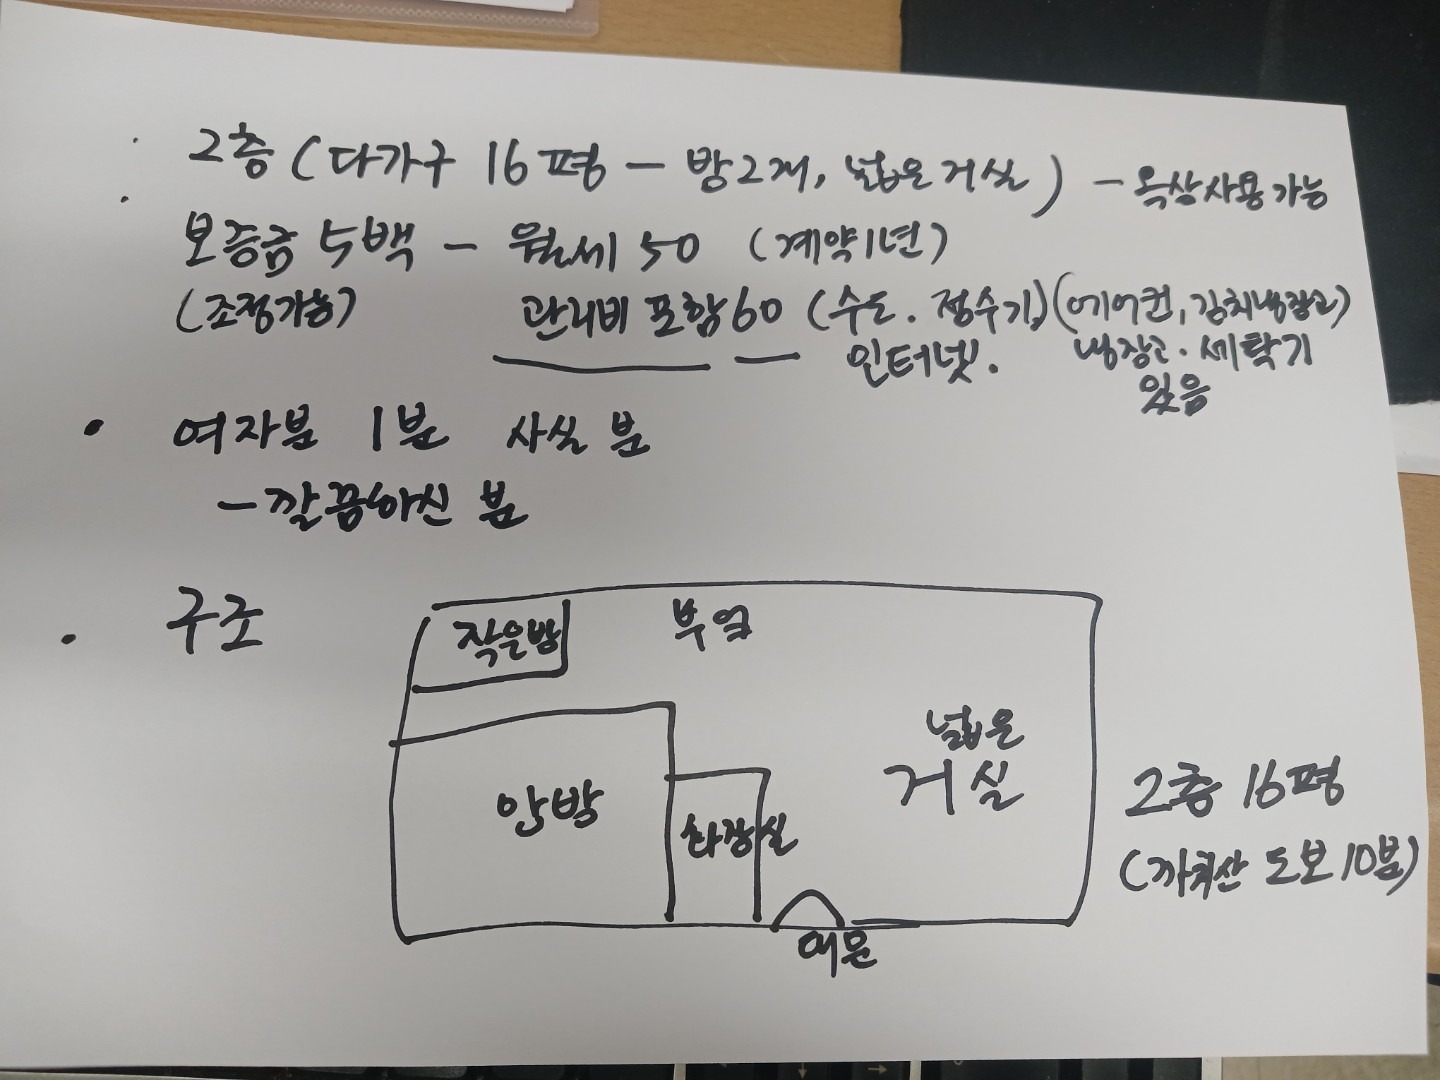 2층 (다가구 16평 - 방2개, 넓은거실) - 옥상사용가능
보증금 5백 - 월세 50 (계약1년)
(조정가능) 관리비 포함 60 (수도. 정수기,) (에어컨, 김치냉장고)
인터넷. 냉장고. 세탁기
있음
여자분 1분 사실 분
- 깔끔하신 분
구조
작은방 부엌
넓은
거실
안방
화장실
2층 16평
(까치산 도보10분)